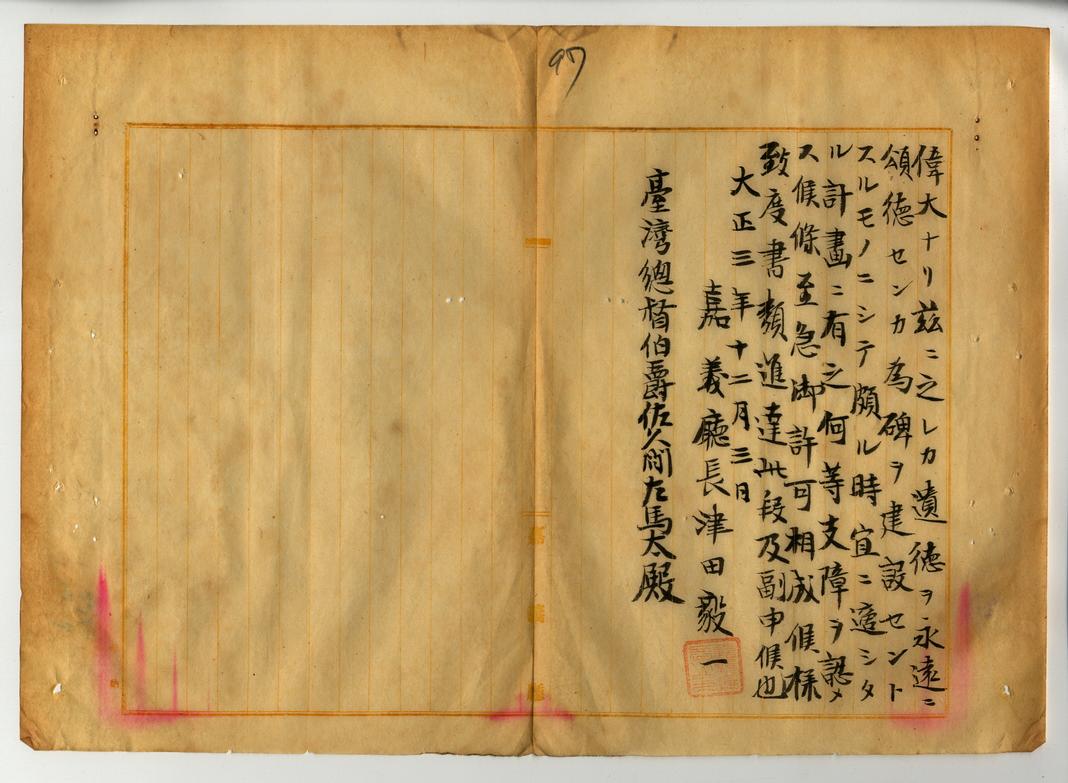 97
偉大ナリ茲ニ之レカ遺徳ヲ永遠ニ
頌徳センカ為碑ヲ建設セント
スルモノニシテ頗ル時宜ニ適シタ
ル計畫ニ有之何等支障ヲ認メ
ス候條至急御許可相成候樣
致度書類進達此段及副申候也
大正三年十二月三日
嘉義廳長津田毅一
臺灣總督伯爵佐久間左馬太殿